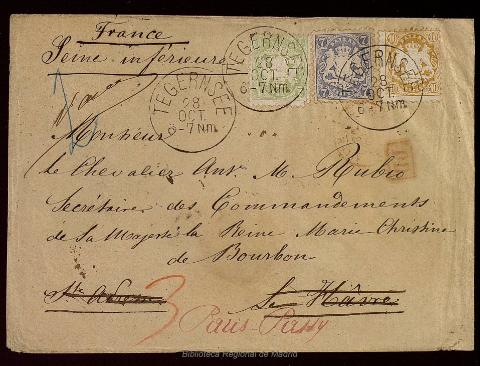 France
Seine inférieure
TEGERNSEE
28
OCT.
6-7 Nm.
TEGERNSEE
28
OCT.
6-7 Nm.
TEGERNSEE
28
OCT.
6-7 Nm.
7
7
Monsieur
le Chevalier Ant. M. Rubio
Secrétaire des Commandements
de Sa Majesté la Reine Marie-Christine
de Bourbon
Ste
Le Hâvre
3
Paris-Passy
Biblioteca Regional de Madrid